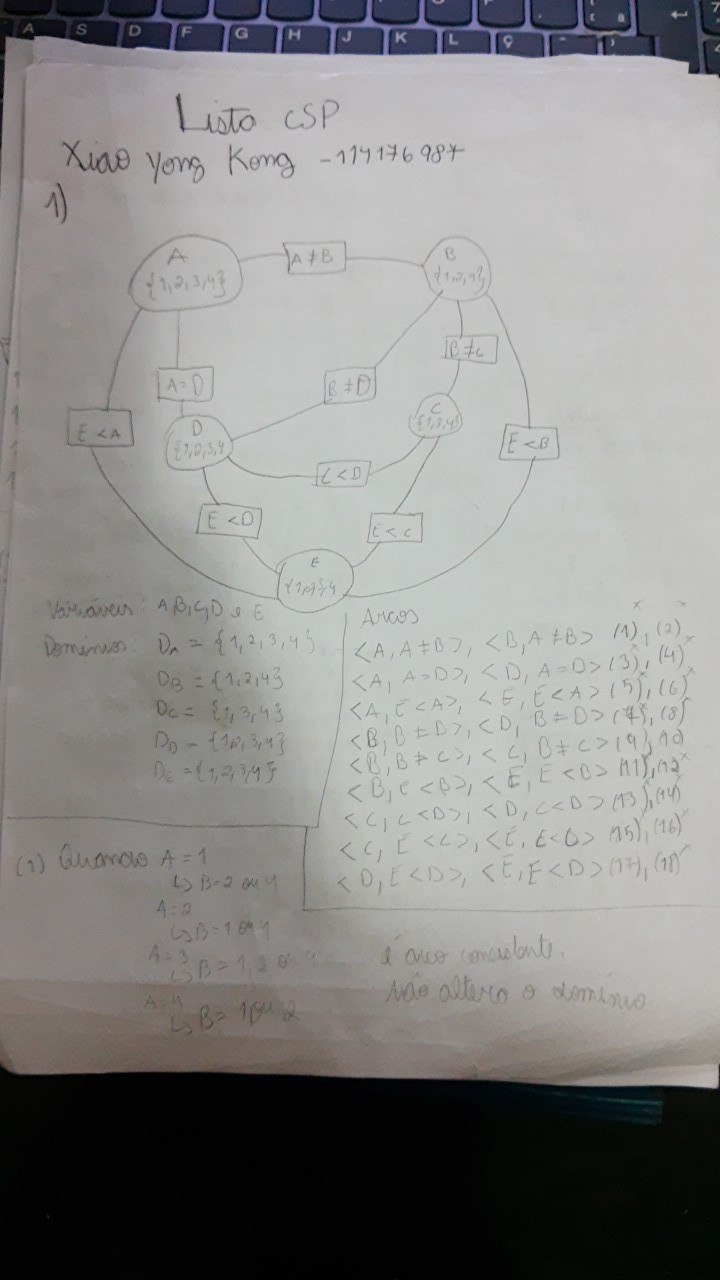 A S D F G H J K L Ç
Listo CSP
Xiao Yong Kong - 114176987
1)
A
{1,2,3,4}
A ≠ B
B
{1,2,4}
B ≠ C
A = D
B ≠ D
C
{1,3,4}
E < A
D
{1,2,3,4
E < B
C < D
E < D
E < C
E
Variáveis: A,B,C,D e E
Domínios: DA = {1,2,3,4}
DB = {1,2,4}
DC = {1,3,4}
DD = {1,2,3,4}
DE = {1,2,3,4}
Arcos
<A, A≠B>, <B, A≠B> (1), (2)
<A, A=D>, <D, A=D> (3), (4)
<A, E<A>, <E, E<A> (5), (6)
<B, B≠D>, <D, B≠D> (7), (8)
<B, B≠C>, <C, B≠C> (9), (10
<B, E<B>, <E, E<B> (11), (12
<C, C<D>, <D, C<D> (13), (14)
<C, E<C>, <E, E<C> (15), (16)
<D, E<D>, <E, E<D> (17), (18)
(1) Quando A = 1
↳ B=2 ou 4
A=2
↳ B=1 ou 4
A=3
↳ B=1, 2 ou 4
A=4
↳ B= 1 ou 2
é arco consistente.
Não altero o domínio